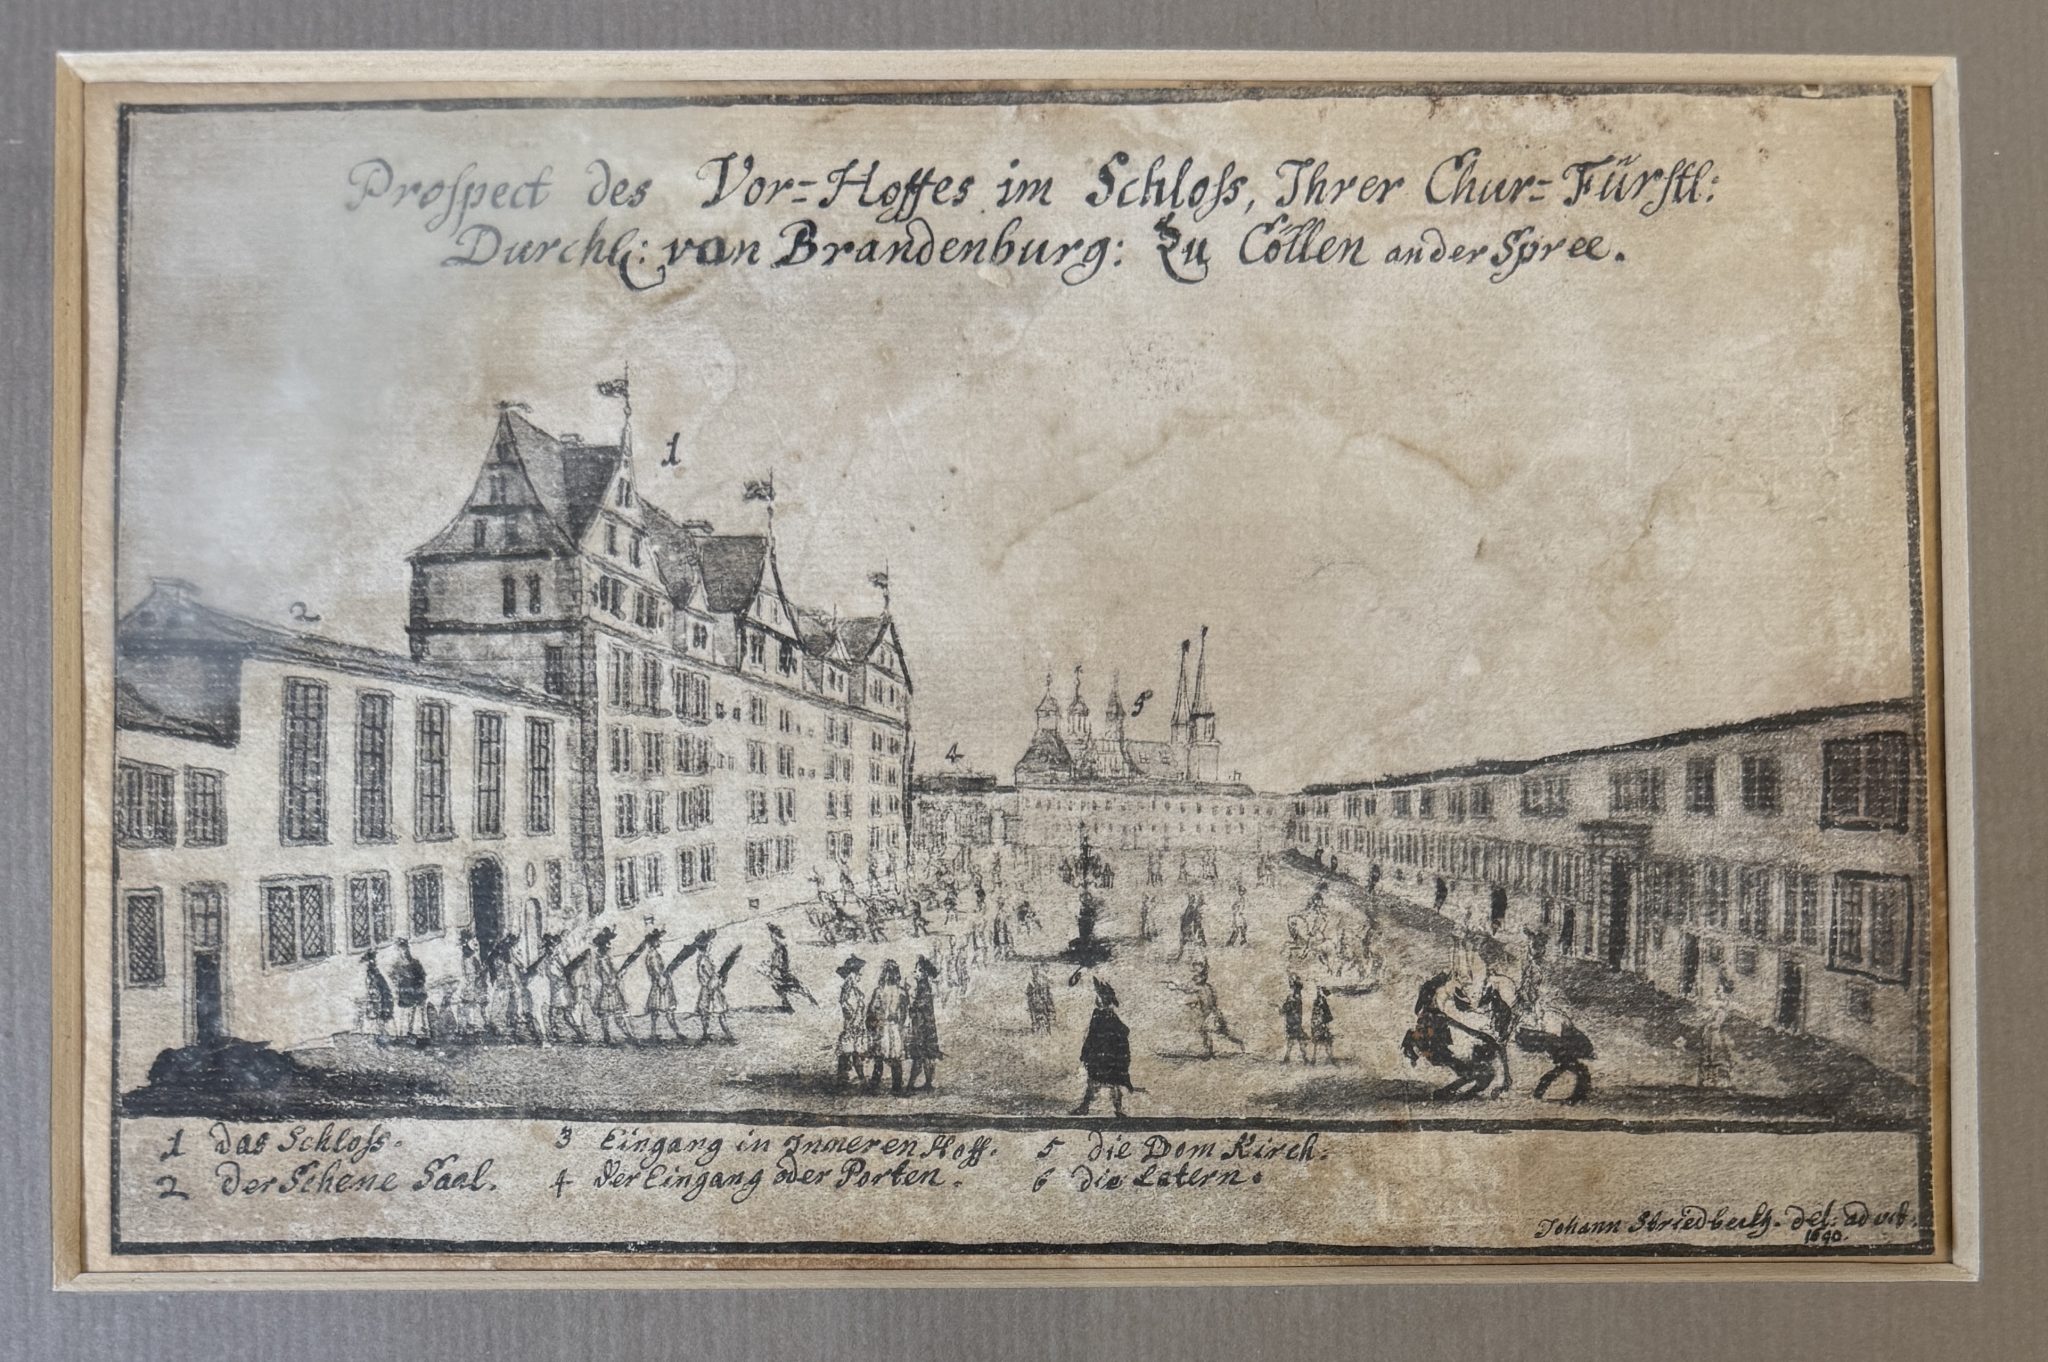 Prospect des Vor=Hoffes im Schloss, Ihrer Chur=Fürstl:
Durchl: von Brandenburg: Zu Cöllen an der Spree.
1
2
5
4
6
1 das Schloss.
2 der Schene Saal.
3 Eingang in Inneren Hoff.
4 der Eingang oder Porten.
5 die Dom Kirch.
6 die Latern.
Johann Stridbeckh. del: ad
1690.